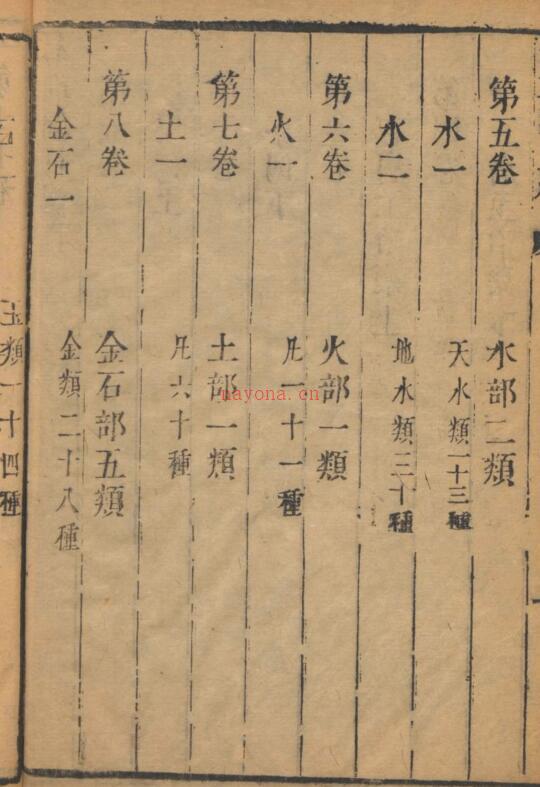 第五卷 水部二類
水一 天水類一十三種
水二 地水類三十種
第六卷 火部一類
火一 凡一十一種
第七卷 土部一類
土一 凡六十種
第八卷 金石部五類
金石一 金類二十八種
玉類一十四種
nayona.cn